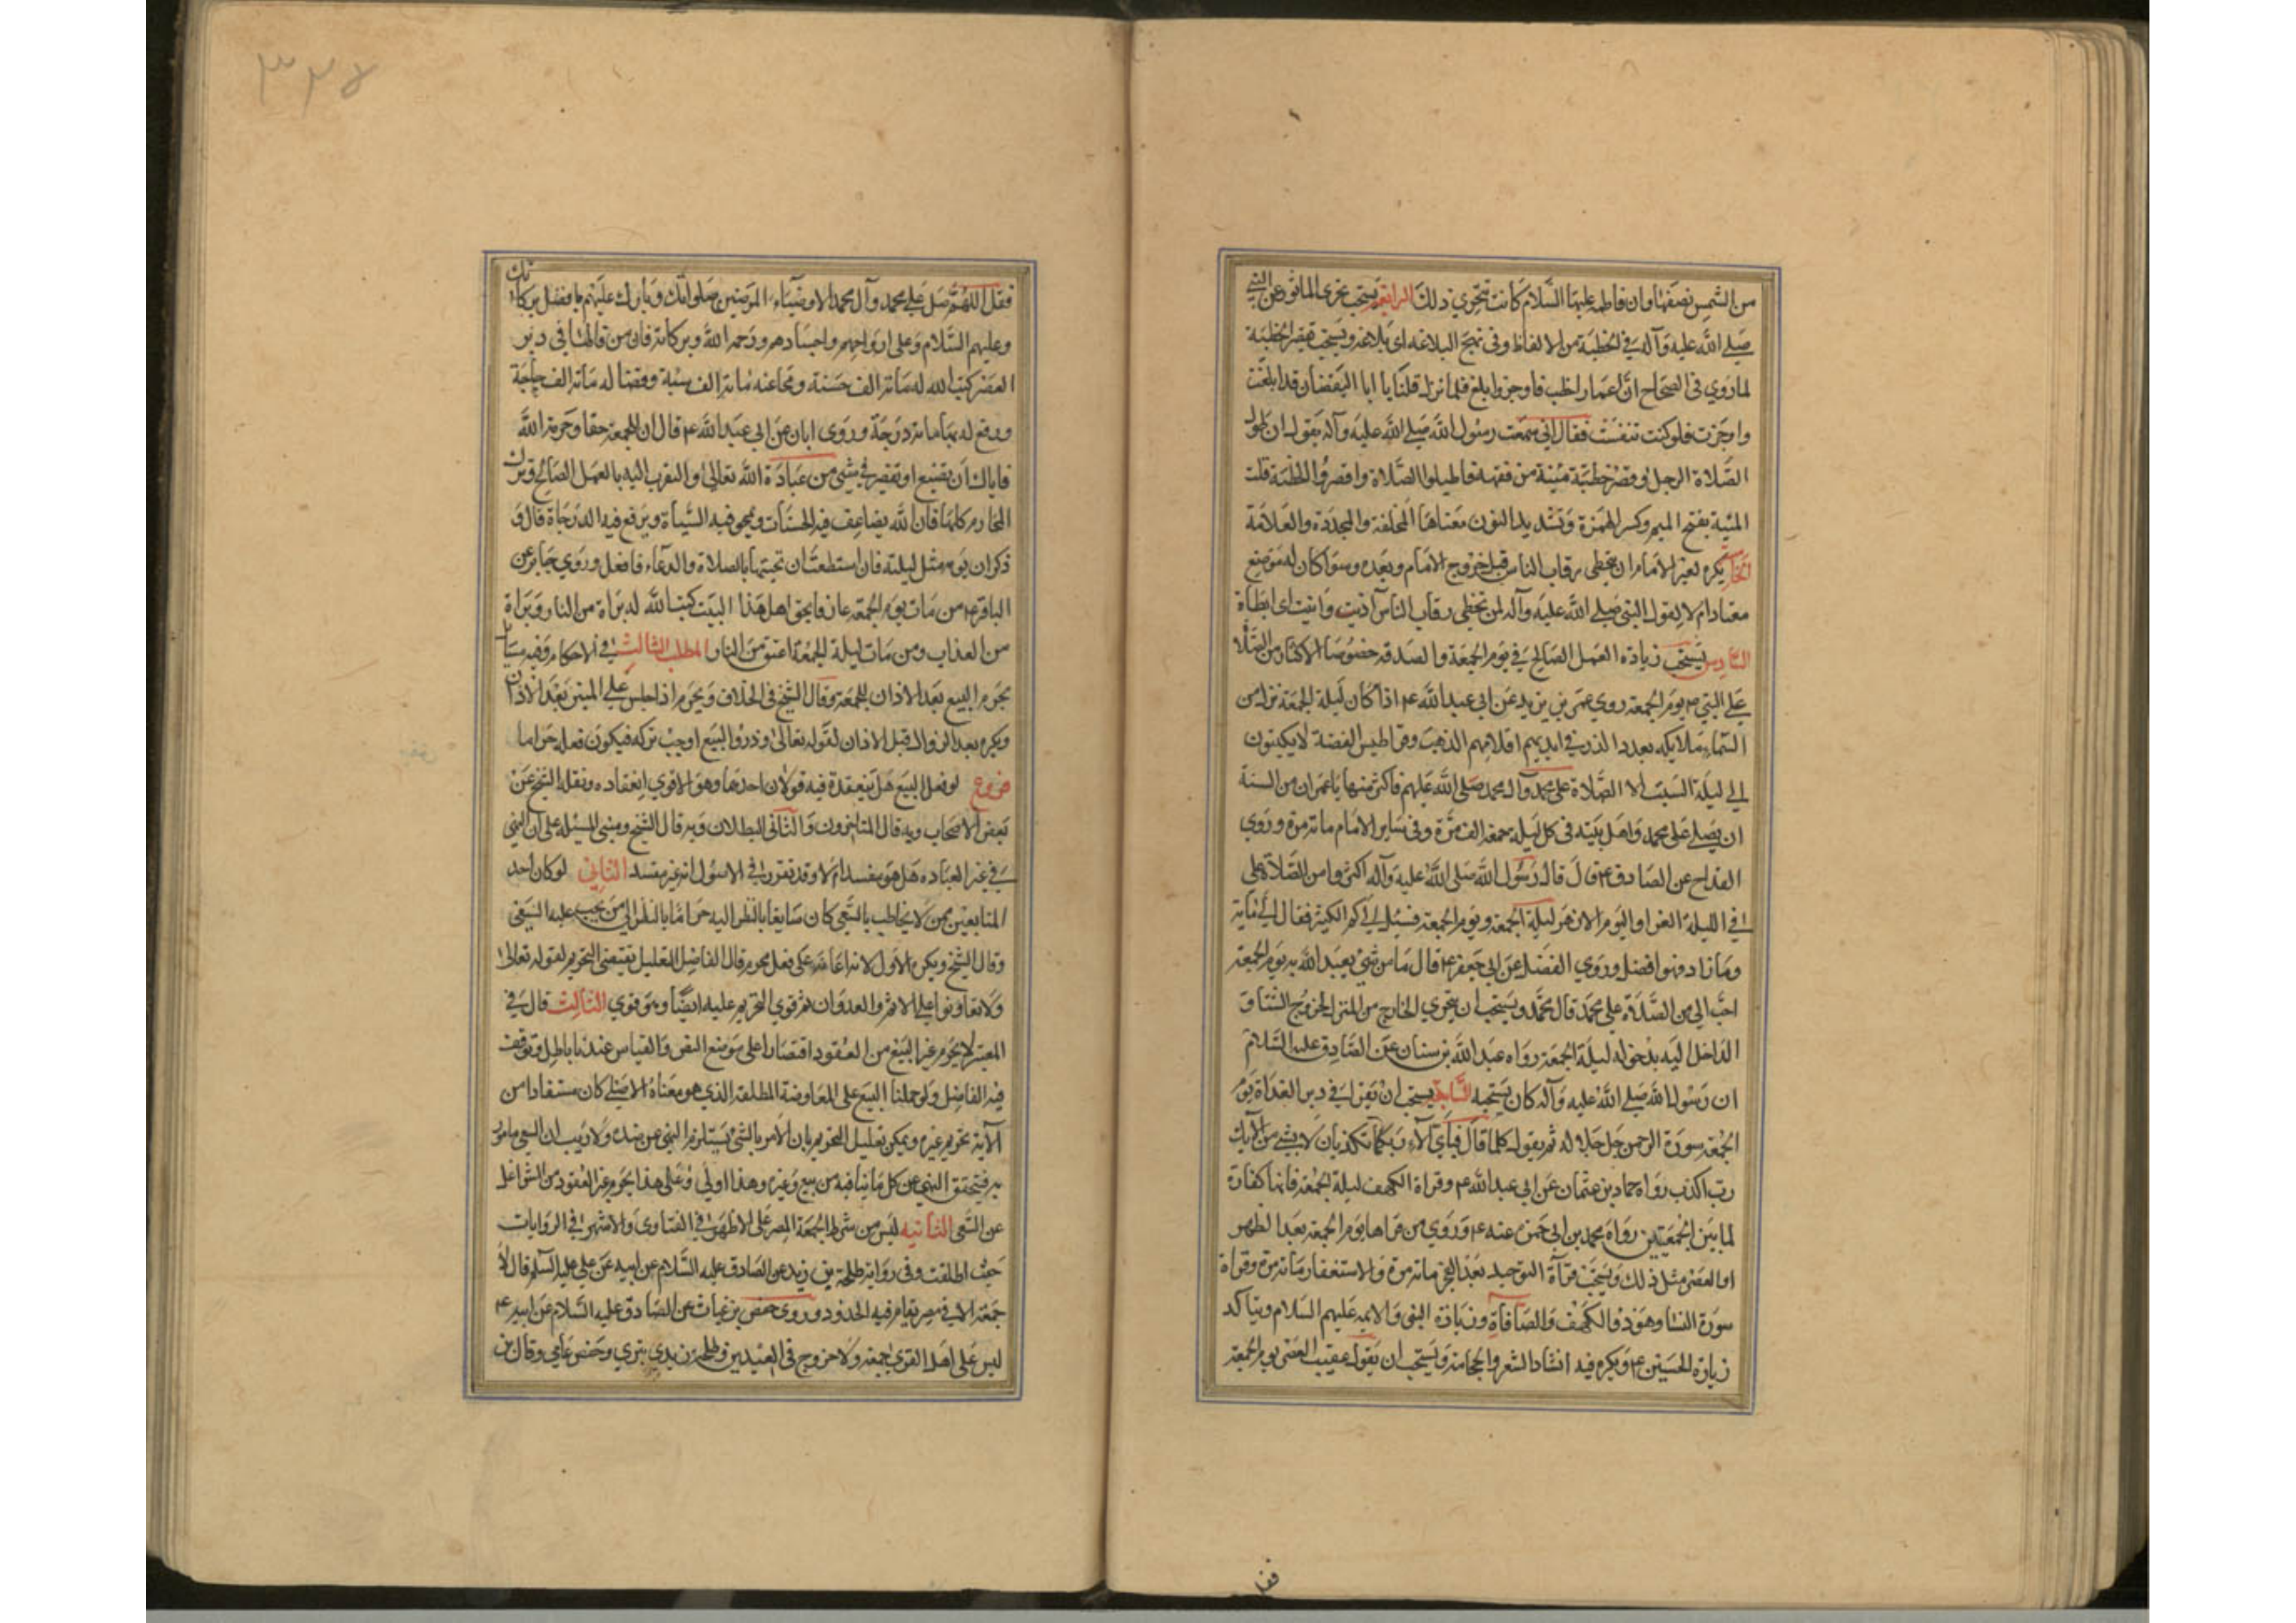 من الشمس نصفها وان فاطمه عليها السلام كانت تتحرى ذلك الرابعة يستحب تحرى الماثور عن النبي
صلى الله عليه وآله في الخطبة من الالفاظ وفى نهج البلاغه اى بلاغه ويستحب تقصير الخطبة
لما روي فى الصحاح ان عمار اخطب فاوجز وابلغ فلما نزل قلنا يا ابا اليقضان قد ابلغت
واوجزت فلو كنت تنفست فقال انى سمعت رسول الله صلى الله عليه وآله يقول ان طول
الصلاة الرجل وقصر خطبته مئنة من فقهه فاطيلوا الصلاة واقصروا الخطبة قلت
المئنة بفتح الميم وكسر الهمزة وتشديد النون معناها المخلفة والمجددة والعلامة
الخامس يكره لغير الامام ان يتخطى رقاب الناس قبل خروج الامام وبعده وسوا كان له موضع
معتاد ام لا لقول النبى صلى الله عليه وآله لمن تخطى رقاب الناس آذيت وانيت اى ابطأة
السادس يستحب زيادة العمل الصالح في يوم الجمعة والصدقه خصوصا الاكثار من الصلاة
على النبي ص يوم الجمعة روي عمر بن يزيد عن ابى عبد الله ع اذا كان ليلة الجمعة نزل من
السماء ملائكه بعدد الذر في ايديهم اقلام الذهب وقراطيس الفضة لا يكتبون
الى ليلة السبت الا الصلاة على محمد وآل محمد صلى الله عليهم فاكثر منها يا عمر ان من السنة
ان يصلى على محمد واهل بيته فى كل ليلة جمعه الف مرة وفى ساير الايام مائة مرة وروى
القداح عن الصادق ع قال قال رسول الله صلى الله عليه وآله اكثروا من الصلاة على
في الليلة الغرا واليوم الازهر ليلة الجمعة ويوم الجمعة فسئل الى كم الكثير فقال الى مائة
وما زاد فهو افضل وروي الفضل عن ابى جعفر ع قال ما من شئ يعبد الله به يوم الجمعة
احب الى من الصلاة على محمد وآل محمد ويستحب ان يتحرى الخارج من المنزل الخروج الشتا و
الداخل اليه بدخوله ليلة الجمعة رواه عبد الله بن سنان عن الصادق عليه السلام
ان رسول الله صلى الله عليه وآله كان يستحبه السابعة يستحب ان يقرا في دبر الغداة يوم
الجمعة سورة الرحمن جل جلاله ثم يقول كلما قال فبأي آلاء ربكما تكذبان لا بشئ من آلآئك
رب اكذب رواه حماد بن عثمان عن ابى عبد الله ع وقراة الكهف ليلة الجمعة فانها كفارة
لما بين الجمعتين رواه محمد بن ابى حمزه عنه ع وروي من قراها يوم الجمعة بعد الظهر
او العصر مثل ذلك ويستحب قرآة التوحيد بعد الفجر مائة مرة والاستغفار مائة مرة وقراة
سورة النسا وهود والكهف والصافاة وزيارة النبى والائمه عليهم السلام ويتاكد
زيارة الحسين ع ويكره فيه انشاد الشعر والحجامة ويستحب ان يقول عقيب العصر يوم الجمعة
فقل
٣٢٧
فقل اللهم صل على محمد وآل محمد الاوصياء المرضيين صلواتك وبارك عليهم بافضل بركاتك
وعليهم السلام وعلى ارواحهم واجسادهم ورحمه الله وبركاته فان من قالها في دبر
العصر كتب الله له مائة الف حسنة ومحا عنه مائة الف سيئة وقضا له مائة الف حاجة
ورفع له بها مائة درجة وروى ابان عن ابى عبد الله ع قال ان للجمعة حقا وحرمة الله
فاياك ان تضيع او تقصر في شئ من عبادة الله تعالى او التقرب اليه بالعمل الصالح وترك
المحارم كلها فان الله يضاعف فيه الحسنات ويمحو فيه السيأة ويرفع فيه الدرجاة قال و
ذكر ان يومه مثل ليلته فان استطعت ان تحييها بالصلاة والدعاء فافعل وروي جابر عن
الباقر ع من مات يوم الجمعة عارفا بحق اهل هذا البيت كتب الله له براة من النار وبراة
من العذاب ومن مات ليلة الجمعة اعتق من النار المطلب الثالث في الاحكام وفيه مسايل
يحرم البيع بعد الاذان للجمعة وقال الشيخ فى الخلاف ويحرم اذا جلس على المنبر بعد الاذان
ويكره بعد الزوال قبل الاذان لقوله تعالى وذروا البيع اوجب تركه فيكون فعله حراما
فروع لو فعل البيع هل ينعقد فيه قولان احدهما وهو الاقوى انعقاده ونقله الشيخ عن
بعض الاصحاب وبه قال المتاخرون والثانى البطلان وبه قال الشيخ ومبنى المسئله على ان النهى
في غير العباده هل هو مفسد ام لا وقد تقرر في الاصول انه غير مفسد الثاني لو كان احد
المتابعين ممن لا يخاطب بالسعى كان سايغا بالنظر اليه حراما بالنظر الى من يجب عليه السعى
وقال الشيخ ويكره الاول لانه اعانة على فعل محرم قال الفاضل التعليل يقتضى التحريم لقوله تعالى
ولا تعاونوا على الاثم والعدوان ثم قوي التحريم عليه ايضا وهو قوي الثالث قال في
المعتبر لا يحرم غير البيع من العقود اقتصارا على موضع النص والقياس عندنا باطل وتوقف
فيه الفاضل ولو حملنا البيع على المعاوضة المطلقة الذي هو معناه الاصلى كان مستفادا من
الآية تحريم غيره ويمكن تعليل التحريم بان الامر بالشئ يستلزم النهي عن ضده ولا ريب ان السعى مامور
به فيتحقق النهى عن كل ما ينافيه من بيع وغيره وهذا اولى وعلى هذا يحرم غير العقود من الشواغل
عن السعى الثانيه ليس من شرط الجمعة المصر على الاظهر في الفتاوى والاشهر في الروايات
حيث اطلقت وفى رواية طلحة بن زيد عن الصادق عليه السلام عن ابيه عن على عليه السلم قال لا
جمعة الا في مصر يقام فيه الحدود وروى حفص بن غياث عن الصادق عليه السلام عن ابيه ع
ليس على اهل القرى جمعة ولا خروج فى العيدين وطلحة بن زيد بتري وحفص عامى وقال بن